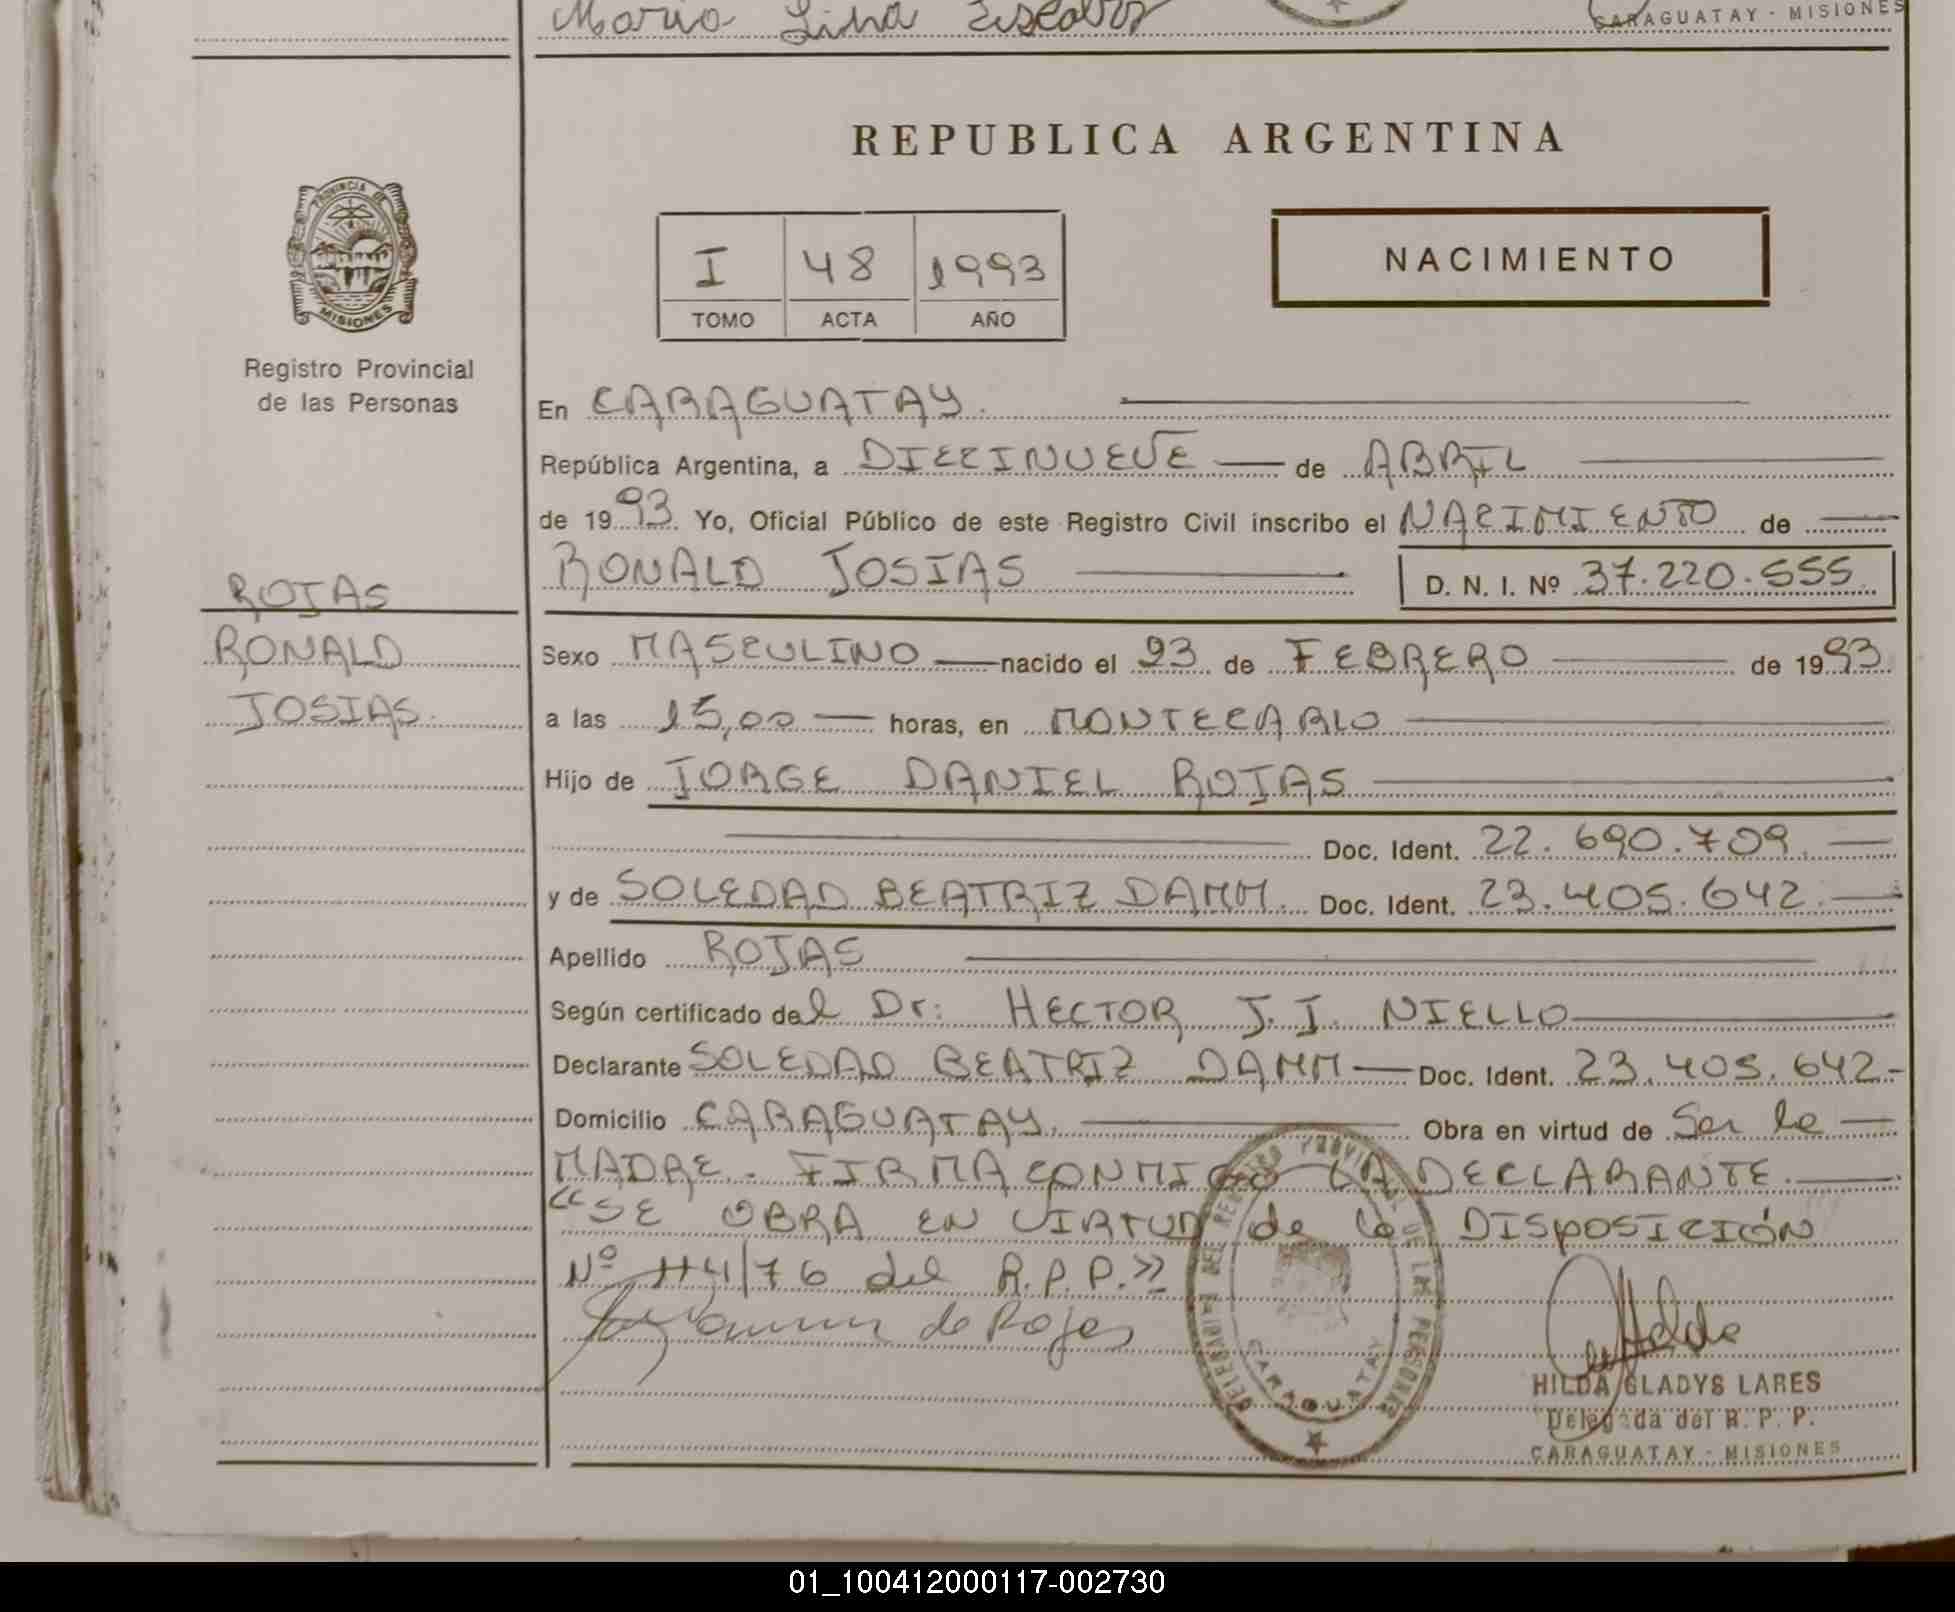 Maria Lina Escobar
CARAGUATAY - MISIONES
REPUBLICA ARGENTINA
PROVINCIA DE
MISIONES
Registro Provincial
de las Personas
I 48 1993
TOMO ACTA AÑO
NACIMIENTO
En CARAGUATAY.
República Argentina, a DIECINUEVE de ABRIL
de 1993. Yo, Oficial Público de este Registro Civil inscribo el NACIMIENTO de
RONALD JOSIAS D. N. I. Nº 37.220.555
ROJAS
RONALD
JOSIAS.
Sexo MASCULINO nacido el 23 de FEBRERO de 1993.
a las 15,00 horas, en MONTECARLO
Hijo de JORGE DANIEL ROJAS
Doc. Ident. 22.690.709.
y de SOLEDAD BEATRIZ DAMM. Doc. Ident. 23.405.642.
Apellido ROJAS
Según certificado del Dr: HECTOR J. J. NIELLO
Declarante SOLEDAD BEATRIZ DAMM Doc. Ident. 23.405.642.-
Domicilio CARAGUATAY. Obra en virtud de Ser la
MADRE. FIRMA CONMIGO LA DECLARANTE.
"SE OBRA EN VIRTUD de la DISPOSICIÓN
Nº 114/76 del R.P.P."
de Rojas
DEL REGISTRO PROVINCIAL DE LAS PERSONAS
CARAGUATAY
HILDA GLADYS LARES
Delegada del R. P. P.
CARAGUATAY - MISIONES
01_100412000117-002730